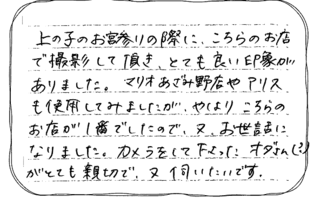 上の子のお宮参りの際に、こちらのお店
で撮影して頂き、とても良い印象が
ありました。マリオあざみ野店やアリス
も使用してみましたが、やはりこちらの
お店が1番でしたので、又、お世話に
なりました。カメラをして下さった オダさん(?)
がとても親切で、又伺いたいです。